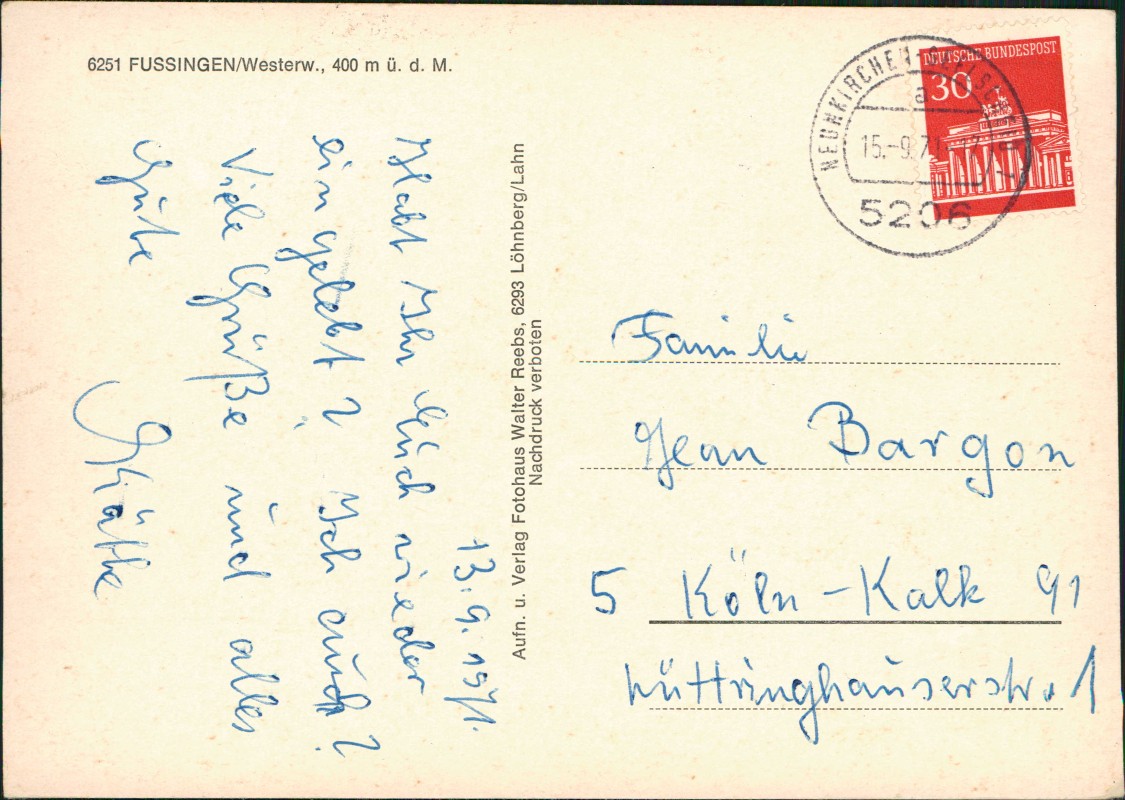 6251 FUSSINGEN/Westerw., 400 m ü. d. M.
13.9.1971.
Habt Ihr Euch wieder
eingelebt? Ich auch?
Viele Grüße und alles
Gute
Käthe
Aufn. u. Verlag Fotohaus Walter Reebs, 6293 Löhnberg/Lahn
Nachdruck verboten
DEUTSCHE BUNDESPOST
30
NEUNKIRCHEN-
a
15.-9.71
5206
Familie
Jean Bargon
5 Köln-Kalk 91
Hüttringhauserstr. 1